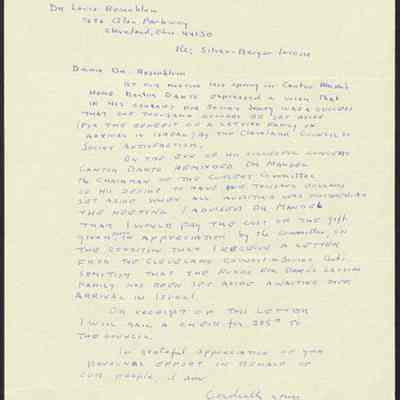 Dr Louis Rosenblum
Cleveland, Ohio 44130
Re: Silver-Berger
Dear Dr. Rosenblum
At our meeting this spring in Cantor
home Cantor Dante expressed a wish that
in his concert for Soviet Jewry was a success
that one thousand dollars be set aside
for the benefit of a Latvian family on
arrival in Israel by the Cleveland Council on
Soviet Antisemitism.
On the eve of his successful concert
Cantor Dante advised Dr Mandel
the chairman of the concert committee
of his desire to have one thousand dollars
set aside
the meeting I advised Dr Mandel
that I would pay the cost of the gift
given in appreciation by the committee, on
the condition that I receive a letter
from the Cleveland Council on Soviet Anti-
semitism that the funds for
family has been set aside awaiting their
arrival in Israel.
On receipt of this letter
I will mail a check for to
the council.
In grateful appreciation of your
personal effort in behalf of
our people, I am
Cordially yours